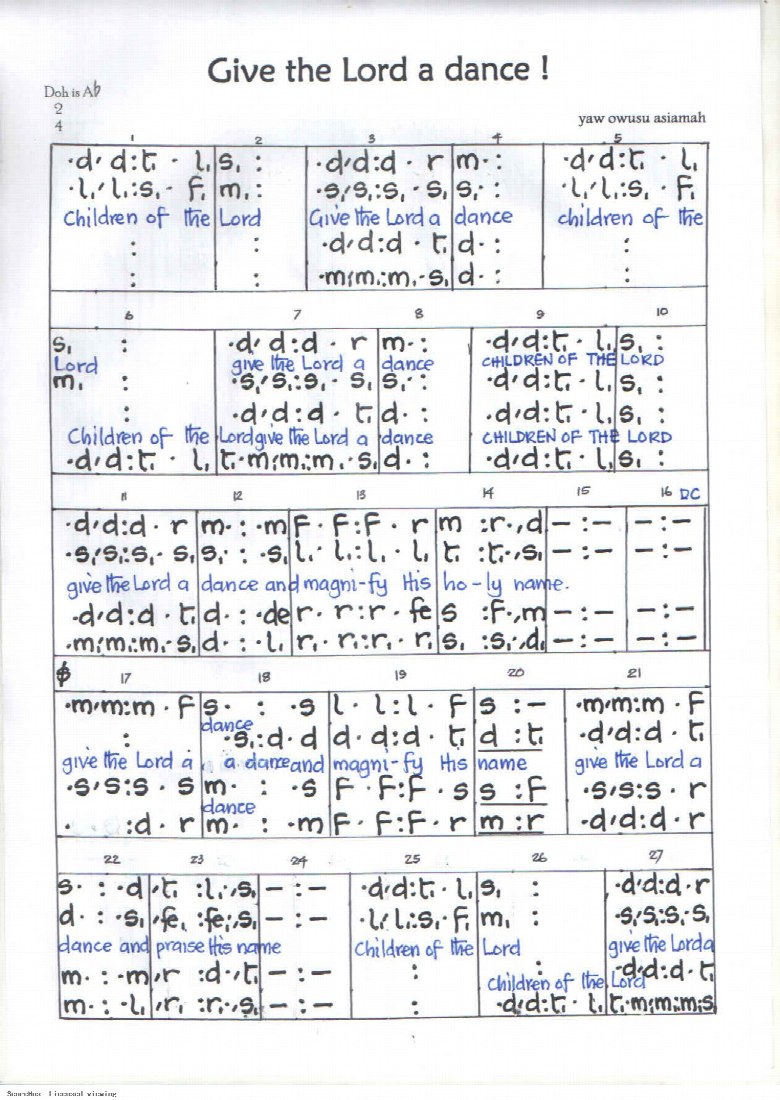 Give the Lord a dance !
Doh is A♭
2
4
yaw owusu asiamah
1 2 3 4 5
·d/ d:t, · l, s, : ·d/d:d · r m· : ·d/d:t, · l,
·l,/ l,:s, · f, m, : ·s,/s,:s, · s, s, : ·l,/ l,:s, · f,
Children of the Lord Give the Lord a dance children of the
: : ·d/d:d · t, d· : :
: : ·m,/m,:m, · s, d· : :
6 7 8 9 10
s, : ·d/ d:d · r m· : ·d/d:t, · l, s, :
Lord give the Lord a dance CHILDREN OF THE LORD
m, : ·s,/s,:s, · s, s, : ·d/d:t, · l, s, :
: ·d/d:d · t, d· : ·d/d:t, · l, s, :
Children of the Lord give the Lord a dance CHILDREN OF THE LORD
·d/d:t, · l, t,·m,/m,:m, · s, d· : ·d/d:t, · l, s, :
11 12 13 14 15 16 DC
·d/d:d · r m· : ·m f · f:f · r m :r·,d – : – – : –
·s,/s,:s, · s, s, · : ·s, l, · l,:l, · l, t, :t,·,s, – : – – : –
give the Lord a dance and magni-fy His ho-ly name.
·d/d:d · t, d· : ·de r · r:r · fe s :f·,m – : – – : –
·m,/m,:m, · s, d· : ·l, r, · r,:r, · r, s, :s,·,d – : – – : –
17 18 19 20 21
·m/m:m · f s· : ·s l · l:l · f s : – ·m/m:m · f
dance
: ·s,:d · d d · d:d · t, d :t, ·d/d:d · t,
give the Lord a a dance and magni-fy His name give the Lord a
·s/s:s · s m· : ·s f · f:f · s s :f ·s/s:s · r
dance
· :d · r m· : ·m f · f:f · r m :r ·d/d:d · r
22 23 24 25 26 27
s· : ·d ,t, :l,·,s, – : – ·d/d:t, · l, s, : ·d/d:d · r
d· : ·s, ,fe, :fe,·,s, – : – ·l,/l,:s, · f, m, : ·s,/s,:s, · s,
dance and praise His name Children of the Lord give the Lord a
m· : ·m ,r :d·,t, – : – : : ·d/d:d · t,
Children of the Lord
m· : ·l, ,r, :r,·,s, – : – : ·d/d:t, · l, t,·m,/m,:m, · s,